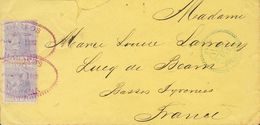 Madame
Marie Louise Lamour
Lucq de Bearn
Basses Pyrenees
France